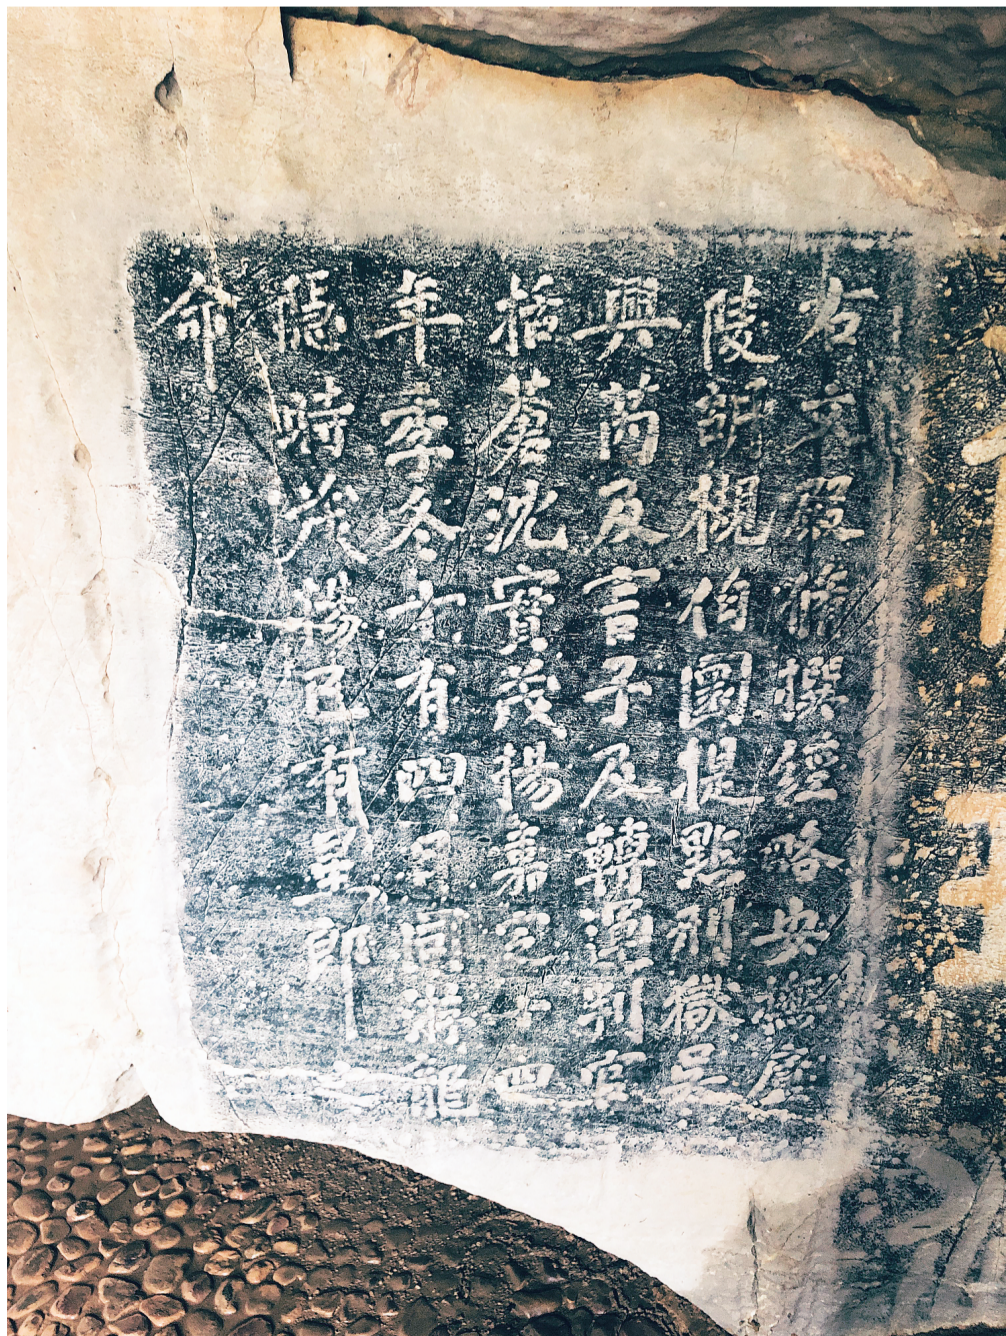 右文殿脩撰經略安撫廬
陵胡槻伯圜提點刑獄吳
興芮及言子及轉運判官
括蒼沈寶茂揚嘉定十四
年季冬十有四日同游龍
隱時茂揚已有星郎之
命